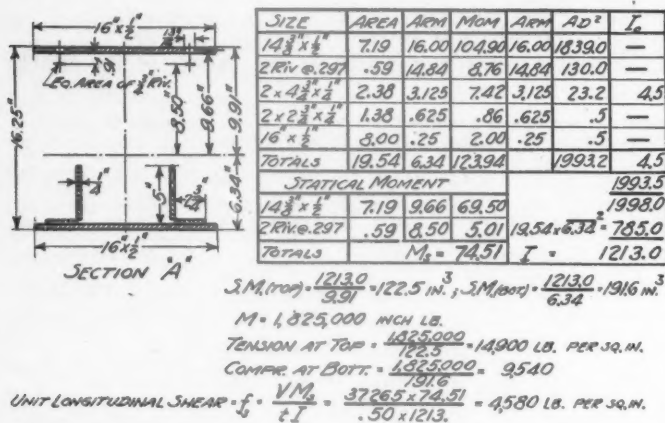 16" x 1/2"
1 3/4"
Eq. Area of 3/4" Riv.
16.25"
8.50"
9.66"
9.91"
6.34"
1/4"
5"
2 3/4"
16" x 1/2"
SECTION "A"
SIZE AREA ARM MOM ARM AD² I₀
14 3/8" x 1/2" 7.19 16.00 104.90 16.00 1839.0 —
2 Riv @ .297 .59 14.84 8.76 14.84 130.0 —
2 x 4 3/4" x 1/4" 2.38 3.125 7.42 3.125 23.2 4.5
2 x 2 3/4" x 1/4" 1.38 .625 .86 .625 .5 —
16" x 1/2" 8.00 .25 2.00 .25 .5 —
TOTALS 19.54 6.34 123.94 1993.2 4.5
STATICAL MOMENT 1993.5
1998.0
14 3/8" x 1/2" 7.19 9.66 69.50
2 Riv @ .297 .59 8.50 5.01 19.54 x 6.34² = 785.0
TOTALS Ms = 74.51 I = 1213.0
S.M.(TOP) = 1213.0 / 9.91 = 122.5 IN.³; S.M.(BOT) = 1213.0 / 6.34 = 191.6 IN.³
M = 1,825,000 INCH LB.
TENSION AT TOP = 1,825,000 / 122.5 = 14,900 LB. PER SQ. IN.
COMPR. AT BOTT. = 1,825,000 / 191.6 = 9,540
UNIT LONGITUDINAL SHEAR = fs = V Ms / t I = 37265 x 74.51 / .50 x 1213. = 4,580 LB. PER SQ. IN.